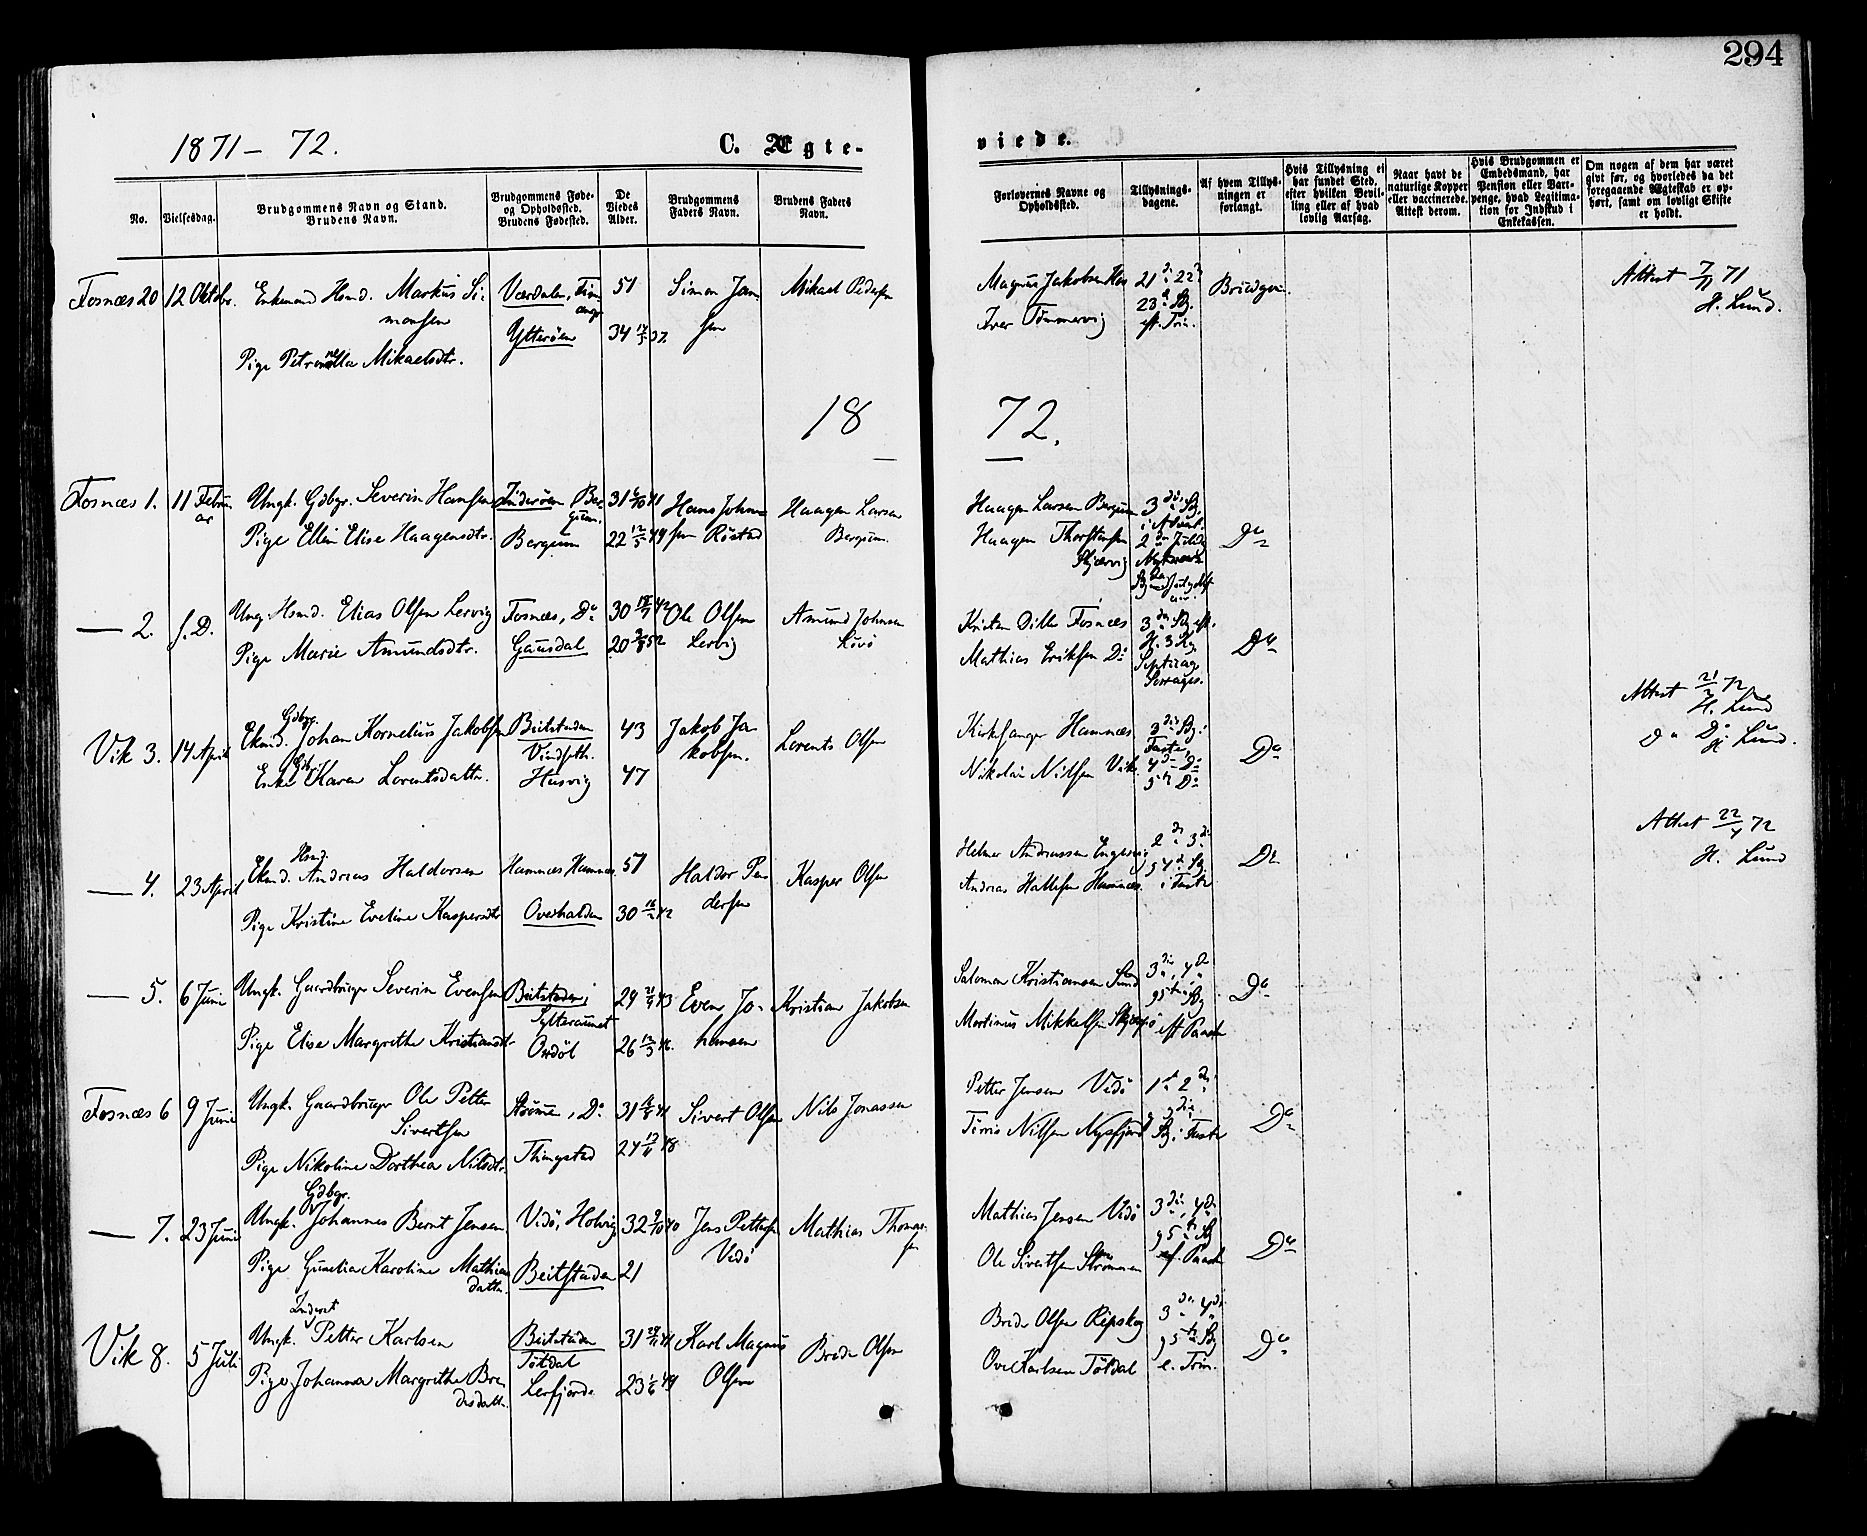 294
1871 – 72.
C. Ægte-
viede.
No.
Vielsesdag.
Brudgommens Navn og Stand.
Brudens Navn.
Brudgommens Føde- og Opholdssted.
Brudens Fødested.
De Viedes Alder.
Brudgommens Faders Navn.
Brudens Faders Navn.
Forlovernes Navne og Opholdssted.
Tillysnings-dagene.
Af hvem Tillysningen er forlangt.
Hvis Tillysning ei har fundet Sted, efter hvilken Bevilling eller af hvad lovlig Aarsag.
Naar havt de naturlige Kopper eller vaccinerede. Attest derom.
Hvis Brudgommen er Embedsmand, har Pension eller Vartpenge, hvad Legitimation for Indskud i Enkekassen.
Om nogen af dem har været gift før, og hvorledes da det foregaaende Ægteskab er ophørt, samt om lovligt Skifte er holdt.
Fosnæs 20 12 Oktobr. Enkemand Hsmd. Markus Simonsen Værdalen, 51 Simon Jansen Mikael Pedersen
Pige Petronella Mikaelsdtr. Ytterøen 34
Magnus Jakobsen 21 22 23 Sg. eft. Trin. Brudgom.
Iver Tømmervig
Attest 7/11 71 H. Lund.
18 72.
Fosnæs 1. 11 Februar Ungk. Gdbgr. Severin Hansen Inderøen Bergum. 31 Hans Johnsen Røstad Haagen Larsen Bergum
Pige Ellen Elise Haagensdtr. Bergum 22 12/5 49
Haagen Larsen Bergum 3 Sg. i Advent. Do
Haagen Thorstensen Skjærvig 2
— 2. s. D. Ung. Hsmd. Elias Olsen Lervig Fosnæs, Do 30 Ole Olsen Lervig Asmund Johnsen
Pige Marie Amundsdtr. Gausdal 20
Kristen Dille Fosnæs 3 Sg. eft. H. 3 Kg. Septuag. Do
Mathias Eriksen Do Sexages.
Vik 3. 14 April Ekmd. Gdbgr. Johan Kornelius Jakobsen Beitstaden 43 Jakob Jakobsen. Lorents Olsen
Enke Karen Lorentsdattr. Husvig 47
Kirkesanger Hamnæs 3 Sg. i Faste, Do
Nikolai Nilsen Vik. 4 Do 5 Do
Attest 21/3 72 H. Lund
Do H. Lund.
— 4. 23 April Ekmd. Hsmd. Andreas Haldorsen Hamnæs Hamnæs. 51 Haldor Pedersen Kasper Olsen
Pige Kristine Eveline Kaspersdtr Overhalden 30 16/2 42
Helmer Andreassen Engesvig 2 3 g 4 Sg. i Faste Do
Andreas Hallesen Hamnæs.
Attest 22/4 72 H. Lund
— 5. 6 Juni Ungk. Gaardbruger Severin Evensen Beitstaden; 29 Even Johansen Kristian Jakobsen
Pige Elise Margrethe Kristiansdtr Oxdöl 26
Salomon Kristiansen Sund 3, 4 g 5 Sg. eft Paaske Do
Martinus Mikkelsen
Fosnæs 6 9 Juni Ungk. Gaardbruger Ole Petter Sivertsen Do 31 Sivert Olsen Nils Jonassen
Pige Nikoline Dorthea Nilsdtr. Thingstad 24
Petter Jensen Vedö 1 2 g 3 Sg. i Faste Do
Nilsen
— 7. 23 Juni Ungk. Gdbgr. Johannes Bernt Jensen Vedö, Holvig 32 9/10 40 Jens Pettersen Vedö Mathias Thomassen
Pige Gunelia Karoline Mathiasdattr. Beitstaden 21
Mathias Jensen Vedö 3, 4 g 5 Sg. eft. Paaske Do
Ole Sivertsen Strömmen
Vik 8. 5 Juli Ungk. Inderst Petter Karlsen Beitstaden Tötdal 31 Karl Magnus Olsen Brede Olsen
Pige Johanna Margrethe Bredesdattr. Lerfjorde 23 1/6 49
Brede Olsen 3 4 g 5 Sg e. Trin. Do
Ove Karlsen Tötdal